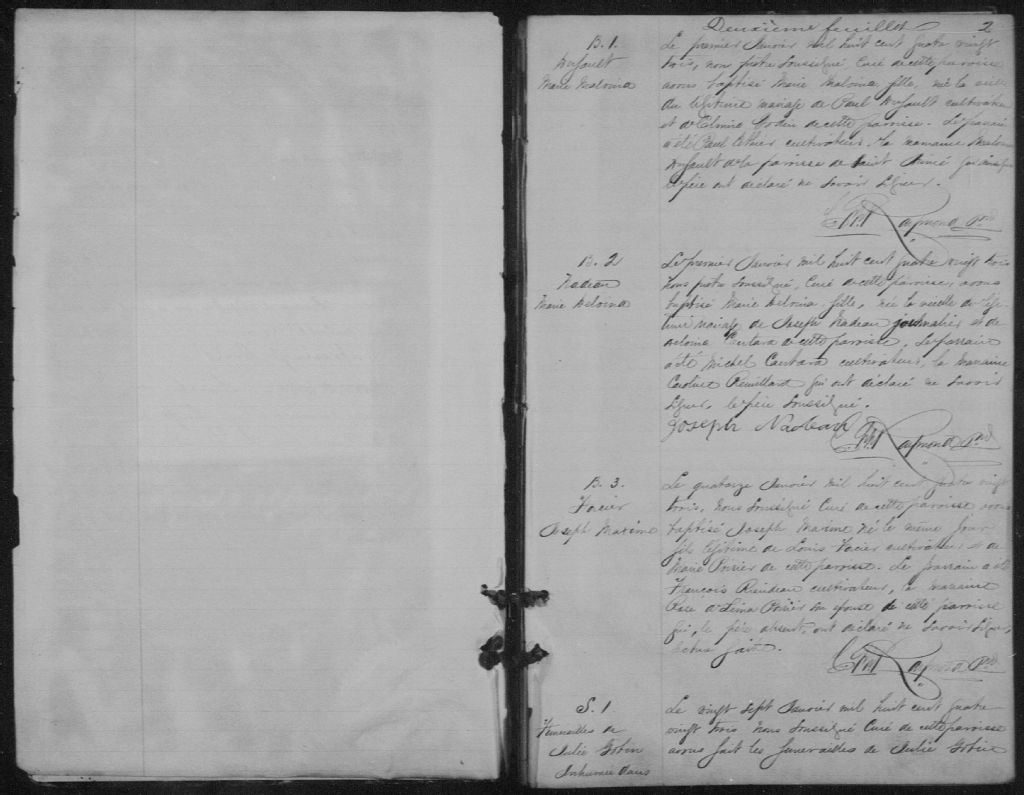 Deuxième feuillet 2
B. 1.
Dufault
Marie Malvina
Le premier Janvier mil huit cent quatre vingt
trois, nous prêtre soussigné, Curé de cette paroisse
avons baptisé Marie Malvina, fille, née la veille
du légitime mariage de Paul Dufault cultivateur
et d'Elmire Godin de cette paroisse. Le parrain
a été Paul Ethier cultivateur, la marraine Malvina
Dufault de la paroisse de Saint Aimé qui ainsi que
le père ont déclaré ne savoir signer.
Raymond Ptre
B. 2
Nadeau
Marie Delvina
Le premier Janvier mil huit cent quatre vingt trois
nous prêtre soussigné, Curé de cette paroisse, avons
baptisé Marie Delvina, fille, née la veille du légi-
time mariage de Joseph Nadeau journalier et de
Cantara de cette paroisse. Le parrain
a été Michel Cantara cultivateur, la marraine
Caroline Remillard qui ont déclaré ne savoir
signer, le père soussigné.
Joseph Nadeau
Raymond Ptre
B. 3.
Joseph Maxime
Le quatorze Janvier mil huit cent quatre vingt
trois, nous soussigné Curé de cette paroisse avons
baptisé Joseph Maxime né le même jour
fils légitime de Louis cultivateur et de
Marie Poirier de cette paroisse. Le parrain a été
François cultivateur, la marraine
Poirier son épouse de cette paroisse
qui, le père absent, ont déclaré ne savoir signer,
lecture faite.
Raymond Ptre
S. 1
Funérailles de
Julie
Inhumée dans
Le vingt sept Janvier mil huit cent quatre
vingt trois nous soussigné Curé de cette paroisse
avons fait les funérailles de Julie